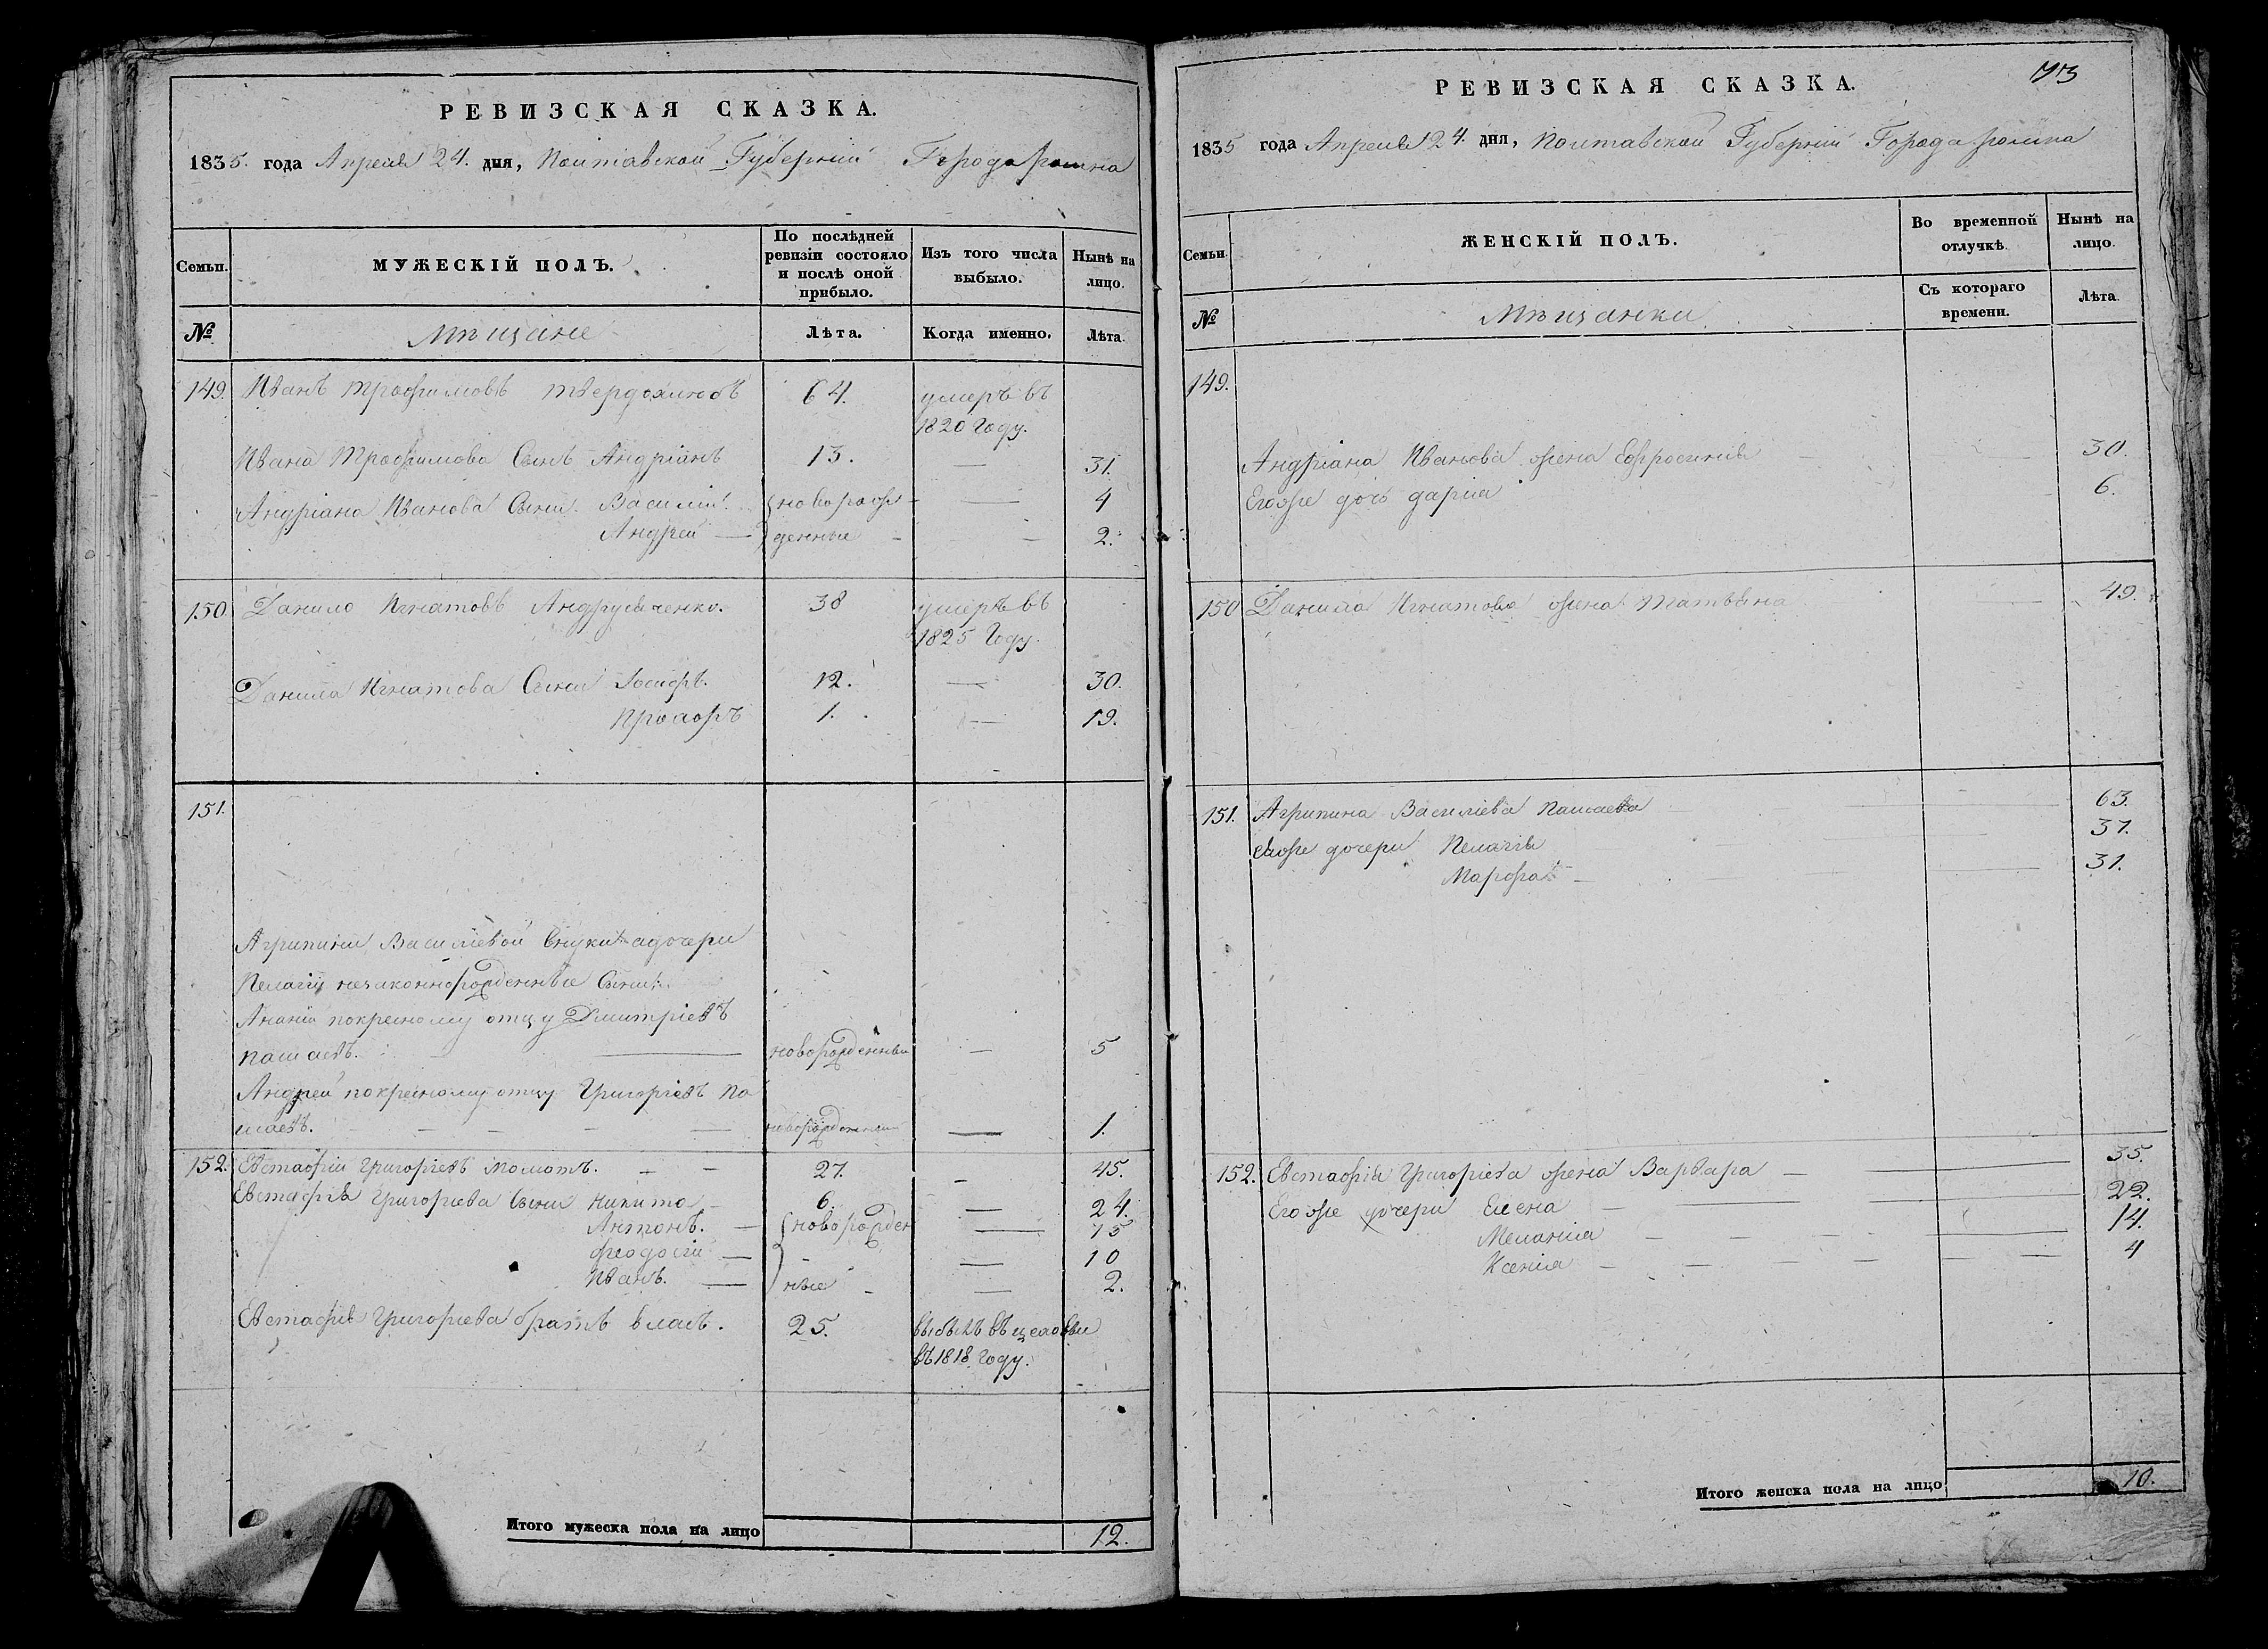 РЕВИЗСКАЯ СКАЗКА.
1835. года Апреля 24. дня, Полтавской Губернии Города Ромна
Семьи.
МУЖЕСКІЙ ПОЛЪ.
По послѣдней ревизіи состояло и послѣ оной прибыло.
Изъ того числа выбыло.
Нынѣ на лицо.
№
Мѣщане
Лѣта.
Когда именно.
Лѣта.
149. Иванъ Трофимовъ Твердохлюбъ 64. умеръ въ
1820 Году.
Ивана Трофимова Сынъ Андріянъ 13. — 31.
Андріана Иванова Сыни Василій новорож — 4
Андрей — денные — 2.
150. Данило Игнатовъ Андрусенченко. 38 умеръ въ
1825 Году.
Данила Игнатова Сыни Іосифъ. 12. — 30.
Прокофъ 1. — 19.
151.
Агрипини Василіевой Внуки а дочери
Пелагіи незаконнорожденные Сыни:
Ананій по кресному отцу Дмитріевъ
Пашаевъ. — новорожденный — 5
Андрей по кресному отцу Григоріевъ Па
шаевъ. — новорожденный — 1.
152. Евстафій Григоріевъ Момотъ. — 27. — 45.
Евстафія Григоріева Сыни Никита 6. — 24.
Антонъ. — новорожден — 15
Феодосій — — 10
Иванъ. — ные — 2.
Евстафія Григоріева братъ Власъ. 25. выбылъ въ
въ 1818. Году.
Итого мужеска пола на лицо 12.
73
РЕВИЗСКАЯ СКАЗКА.
1835 года Апреля 24. дня, Полтавской Губерніи Города Ромна
Семьи
ЖЕНСКІЙ ПОЛЪ.
Во временной отлучкѣ.
Нынѣ на лицо.
№
Мѣщанки
Съ котораго времени.
Лѣта.
149.
Андріана Иванова жена Ефросинія — 30.
Егоже дочь Дарія 6.
150 Данила Игнатова жена Татьяна — 49.
151. Агрипина Василіева Пашаева 63.
еяже дочери Пелагія — 37.
Марфа — 31.
152. Евстафія Григоріева жена Варвара — 35.
Егоже дочери Елена — 22.
Меланія — 14.
Ксенія — 4
Итого женска пола на лицо 10.